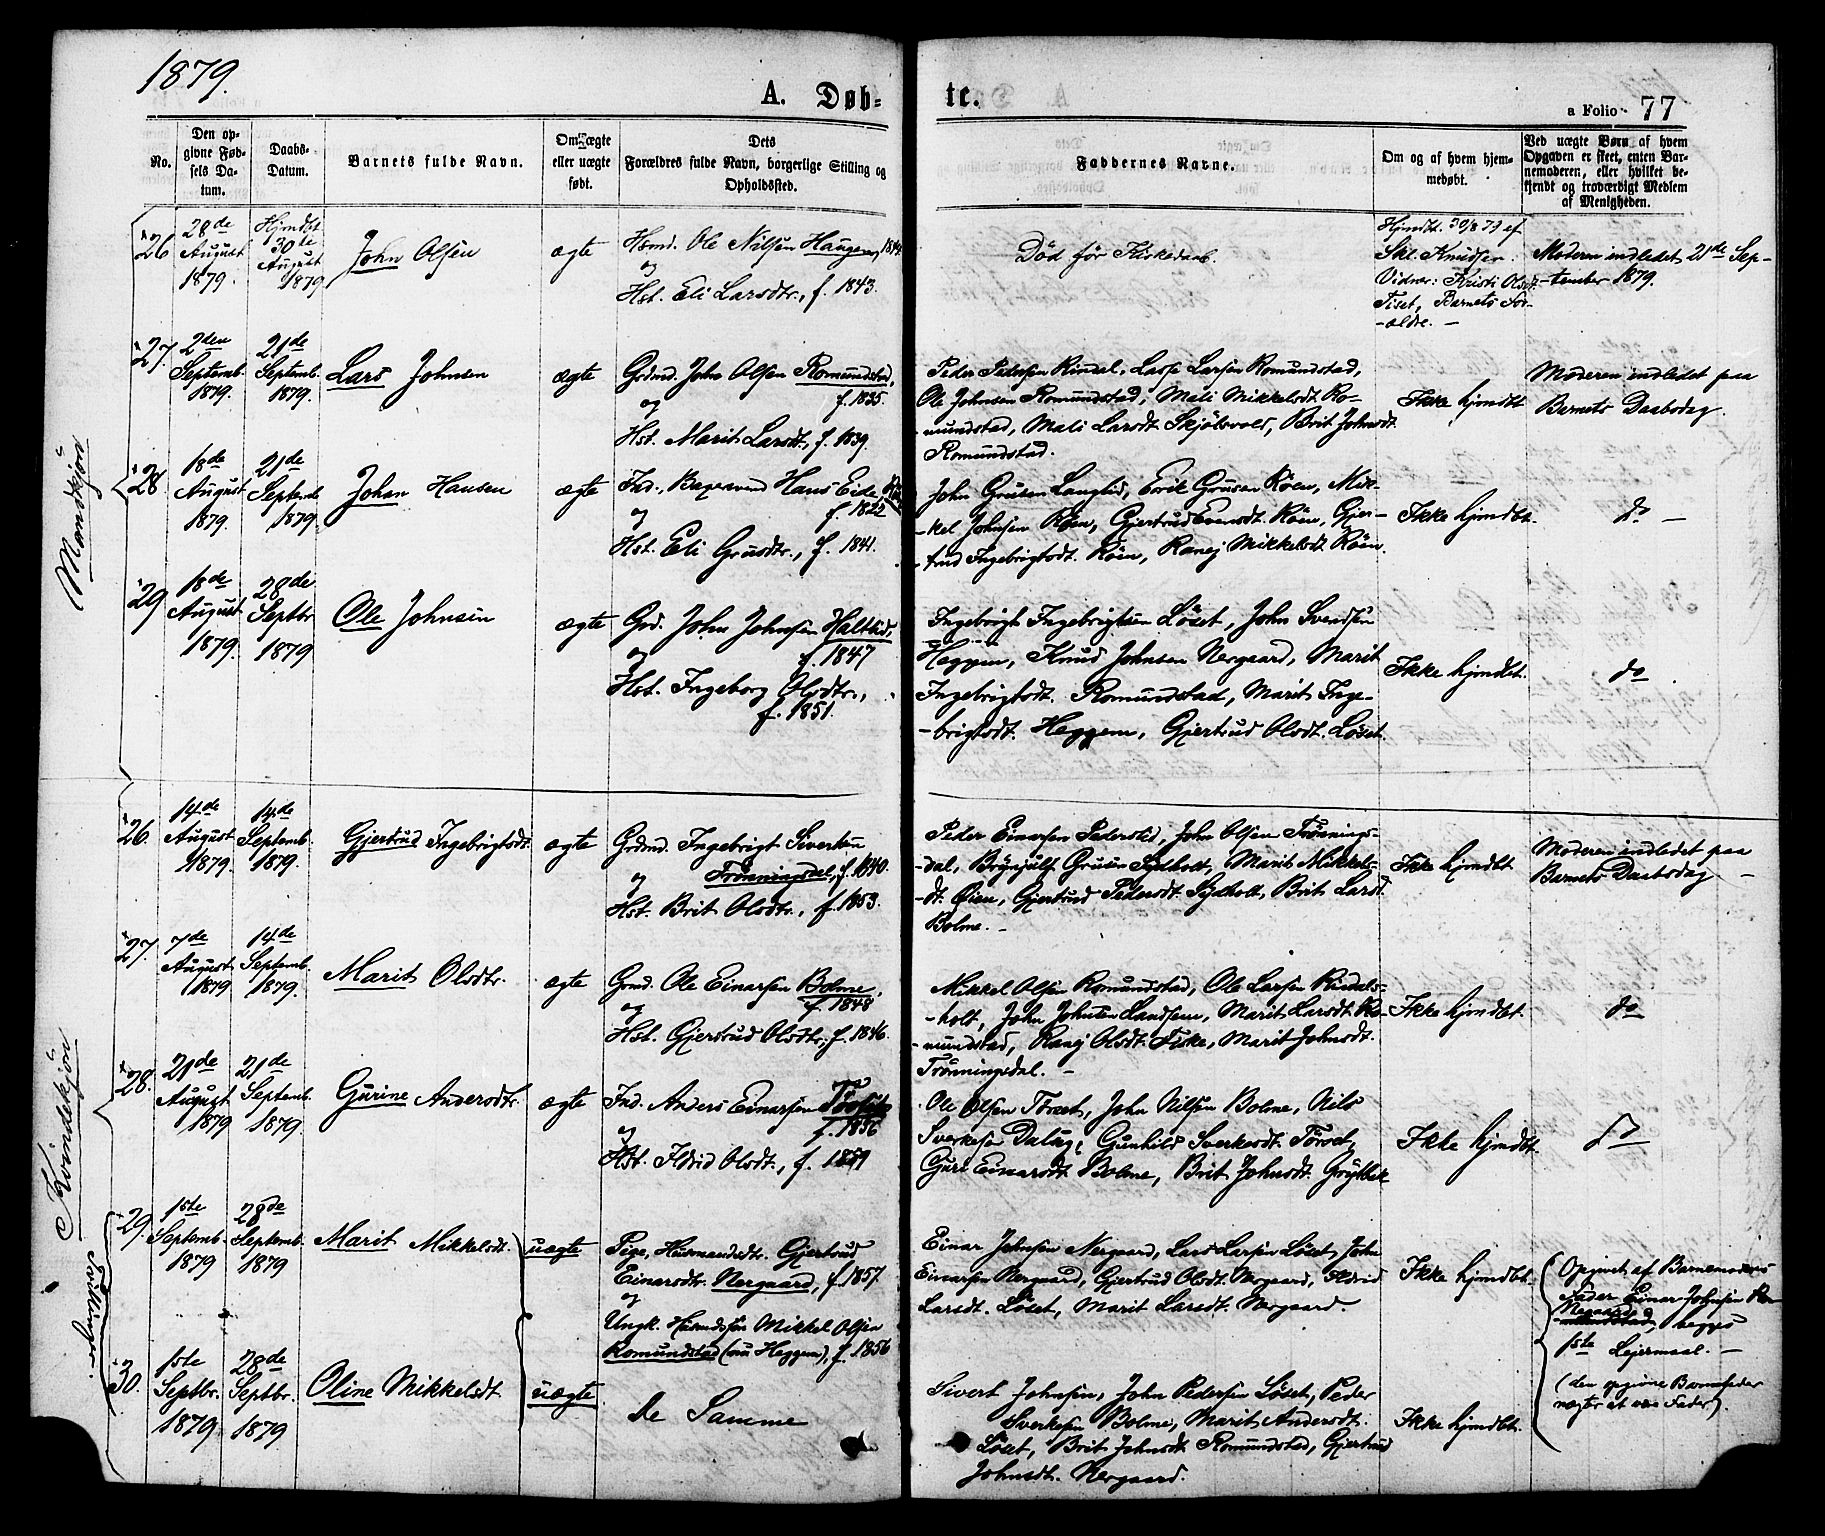 1879.
A. Døb-
te.
a Folio 77
No.
Den op-
givne Fød-
sels Da-
tum.
Daabs-
Datum.
Barnets fulde Navn.
Om ægte
eller uægte
født.
Dets
Forældres fulde Navn, borgerlige Stilling og
Opholdssted.
Faddernes Navne.
Om og af hvem hjem-
medøbt.
Ved uægte Børn af hvem
Opgaven er skeet, enten Bar-
nemoderen, eller hvilket be-
kjendt og troværdigt Medlem
af Menigheden.
Mandkjøn
26
28de
August
1879.
Hjmdbt.
30te
August
1879
John Olsen
ægte
Hsmd. Ole Nilsen Haugen,
og
Hst. Eli Larsdtr., f. 1843.
Død før Kirkedaab.
Hjmdbt. 30/8 79 af
Skl. Knudsen.
Vidner: Kristi Olsdt.
Tiset, Barnets For-
-ældre. -
Moderen indledet 21de Sep-
-tember 1879.
27.
2den
Septemb.
1879.
21de
Septemb.
1879.
Lars Johnsen
ægte
Grdmd. John Olsen Romundstad,
f. 1835.
og
Hst. Marit Larsdt., f. 1839.
Peder Pedersen Rindal, Lars Larsen Romundstad,
Ole Johnsen Romundstad, Mali Mikkelsdt. Ro-
-mundstad, Mali Larsdt. Skjølsvold, Brit Johnsdt.
Romundstad.
Ikke hjmdbt.
Moderen indledet paa
Barnets Daabsdag.
28.
18de
August
1879.
21de
Septemb.
1879.
Johan Hansen
ægte
Ind. Hans Eide,
f. 1822
og
Hst. Eli Grusdtr., f. 1841.
John Grusen Langlid, Erik Grusen Röen, Mik-
-kel Johnsen Röen, Gjertrud Evensdt. Röen, Gjer-
-trud Ingebrigtsdt. Röen, Ranej Mikkelsdt. Röen.
Ikke hjmdbt.
do -
29
18de
August
1879.
28de
Septbr.
1879
Ole Johnsen
ægte
Grd. John Johnsen Haltlid,
f. 1847
og
Hst. Ingeborg Olsdtr.,
f. 1851.
Ingebrigt Ingebrigtsen Löset, John Svendsen
Heggem, Knud Johnsen Nergaard, Marit
Ingebrigtsdt. Romundstad, Marit Inge-
-brigtsdt. Heggem, Gjertrud Olsdt. Löset.
Ikke hjmdbt.
do
Kvindekjøn
26.
14de
August
1879.
14de
Septemb.
1879.
Gjertrud Ingebrigtsdt.
ægte
Grdmd. Ingebrigt Sivertsen
og Trönningsdal, f. 1840.
Hst. Brit Olsdtr., f. 1853.
Peder Einarsen Pederslid, John Olsen Trönnings-
-dal, Brynjulf Grusen Sydholt, Marit Mikkels-
-dt. Øien, Gjertrud Pedersdt. Sydholt, Brit Larsd.
Bolme. -
Ikke hjmdbt.
Moderen indledet paa
Barnets Daabsdag -
27.
7de
August
1879
14de
Septemb.
1879.
Marit Olsdtr.
ægte
Grmd. Ole Einarsen Bolme,
f. 1848.
og
Hst. Gjertrud Olsdtr., f. 1846.
Mikkel Olsen Romundstad, Ole Larsen Rindals-
-holt, John Johnsen Landsem, Marit Larsdt. Ro-
-mundstad, Ranej Olsdt. Fiske, Marit Johnsdt.
Trönningsdal. -
Ikke hjmdbt.
do
28.
21de
August
1879
21de
Septemb.
1879.
Gurine Andersdtr.
ægte
Ind. Anders Einarsen
f. 1856
og
Hst. Ildrid Olsdt., f. 1859
Ole Olsen Törset, John Nilsen Bolme, Nils
Sverkesen Dalug, Gunhild Sverkesdt. Törset,
Guri Einarsdt. Bolme, Brit Johnsdt. Grytbak
Ikke hjmdbt.
do
Tvillinger.
29.
1ste
Septemb.
1879
28de
Septemb.
1879
Marit Mikkelsdt.
uægte
Pige, Husmandsdt. Gjertrud
Einarsdt. Nergaard, f. 1857.
og
Ungk. Husmdssön Mikkel Olsen
Romundstad (nu Heggem), f. 1856
Einar Johnsen Nergaard, Lars Larsen Löset, John
Einarsen Nergaard, Gjertrud Olsdt. Nergaard, Ildrid
Larsdt. Löset, Marit Larsdt. Nergaard.
Ikke hjmdbt.
Opgivet af Barnemoderens
Fader Einar Johnsen
Negaard, begges
1ste Leiermaal. -
(den opgivne Barnefader
nægter at være Fader).
30.
1ste
Septbr.
1879.
28de
Septbr.
1879
Oline Mikkelsdt.
uægte
de Samme
Sivert Johnsen, John Pedersen Löset, Peder
Sverkesen Bolme, Marit Andersdt.
Löset, Brit Johnsdt. Romundstad, Gjertrud
Johnsdt. Nergaard.
Ikke hjmdbt.